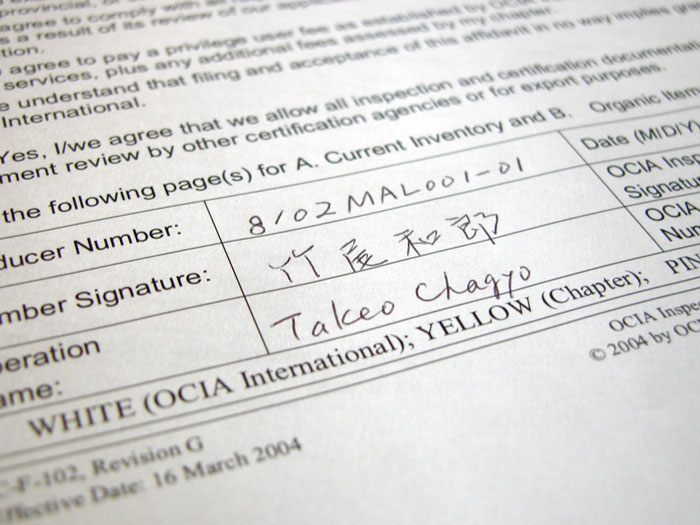 agree to comply with all
s a result of its review of our
tion.
agree to pay a privilege user fee as established by OCIA
services, plus any additional fees assessed by my chapter.
e understand that filing and acceptance of this affidavit in no way implies
International.
Yes, I/we agree that we allow all inspection and certification documentat
ment review by other certification agencies or for export purposes.
the following page(s) for A. Current Inventory and B. Organic Item
ducer Number: 8/02MAL001-01 Date (M/D/Y
mber Signature: 竹尾和郎 OCIA Insp
Signatu
eration Takeo Chagyo OCIA
ame: Num
WHITE (OCIA International); YELLOW (Chapter); PIN
OCIA Inspec
© 2004 by OC
C-F-102, Revision G
ffective Date: 16 March 2004